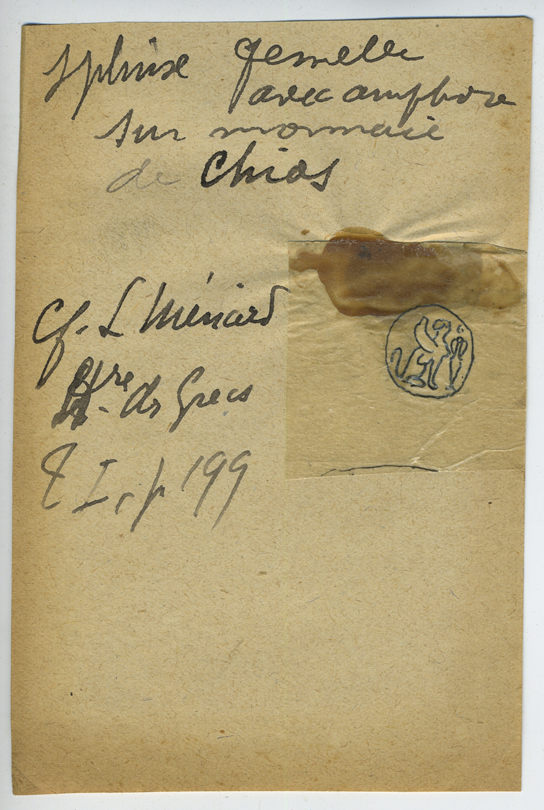 sphinx femelle
avec amphore
sur monnaie
de Chios
Cf. L Ménard
Hre des Grecs
T I, p 199